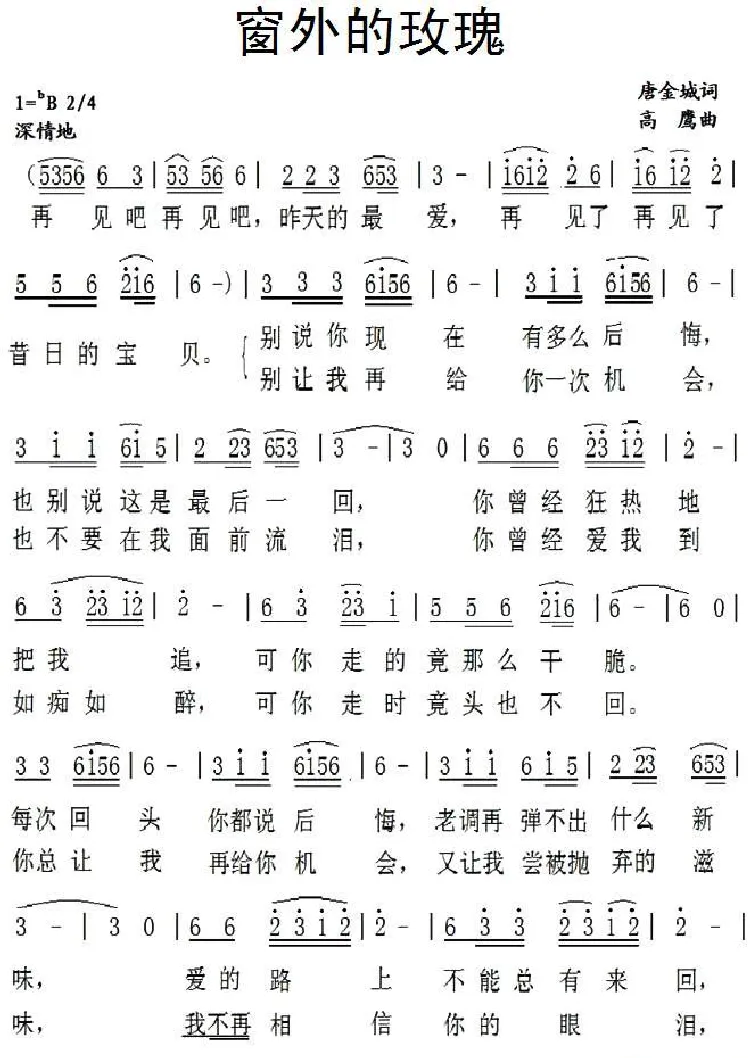 窗外的玫瑰
1=ᵇB 2/4
唐金城词
深情地
高 鹰曲
(5356 6 3 | 53 56 6 | 2 2 3 653 | 3 - | i6i2 2 6 | i6 i2 2 |
再 见吧再见吧,昨天的最 爱, 再 见了再见了
5 5 6 2i6 | 6 -) | 3 3 3 6i56 | 6 - | 3 i i 6i56 | 6 - |
昔日的宝 贝。 别说你现 在 有多么后 悔,
别让我再 给 你一次机 会,
3 i i 6i 5 | 2 23 653 | 3 - | 3 0 | 6 6 6 23 i2 | 2 - |
也别说这是最后一 回, 你曾经狂热地
也不要在我面前流 泪, 你曾经爱我到
6 3 23 i2 | 2 - | 6 3 23 i | 5 5 6 2i6 | 6 - | 6 0 |
把我 追, 可你走的竟那么干 脆。
如痴如 醉, 可你走时竟头也不 回。
3 3 6i56 | 6 - | 3 i i 6i56 | 6 - | 3 i i 6 i 5 | 2 23 653 |
每次回 头 你都说后 悔, 老调再弹不出什么新
你总让 我 再给你机 会, 又让我尝被抛弃的滋
3 - | 3 0 | 6 6 2 3 i 2 | 2 - | 6 3 3 2 3 2 i 2 | 2 - |
味, 爱的路 上 不能总有来回,
味, 我不再相 信 你的眼 泪,